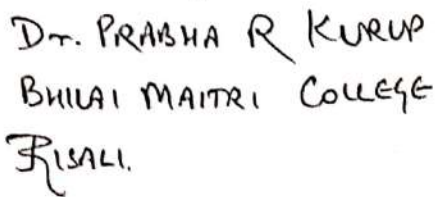 Dr. PRABHA R KURUP
BHILAI MAITRI COLLEGE
RISALI.